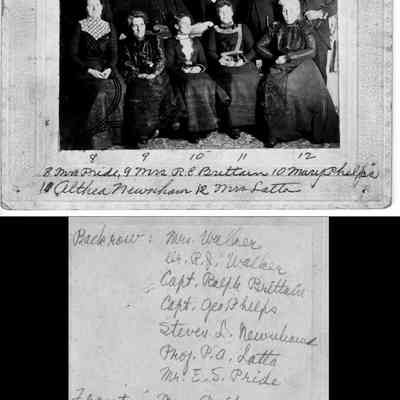 8 9 10 11 12
8 Mrs Pride, 9 Mrs R.E Brittain 10 Mary Phelps
11 Althea Newnham 12 Mrs Latta
Back row: Mrs. Walker
Dr. R.J. Walker
Capt. Ralph Brittain
Capt. Geo Phelps
Steven L. Newnham
Prof. P.A. Latta
Mr. E.S. Pride
Front: Mrs.